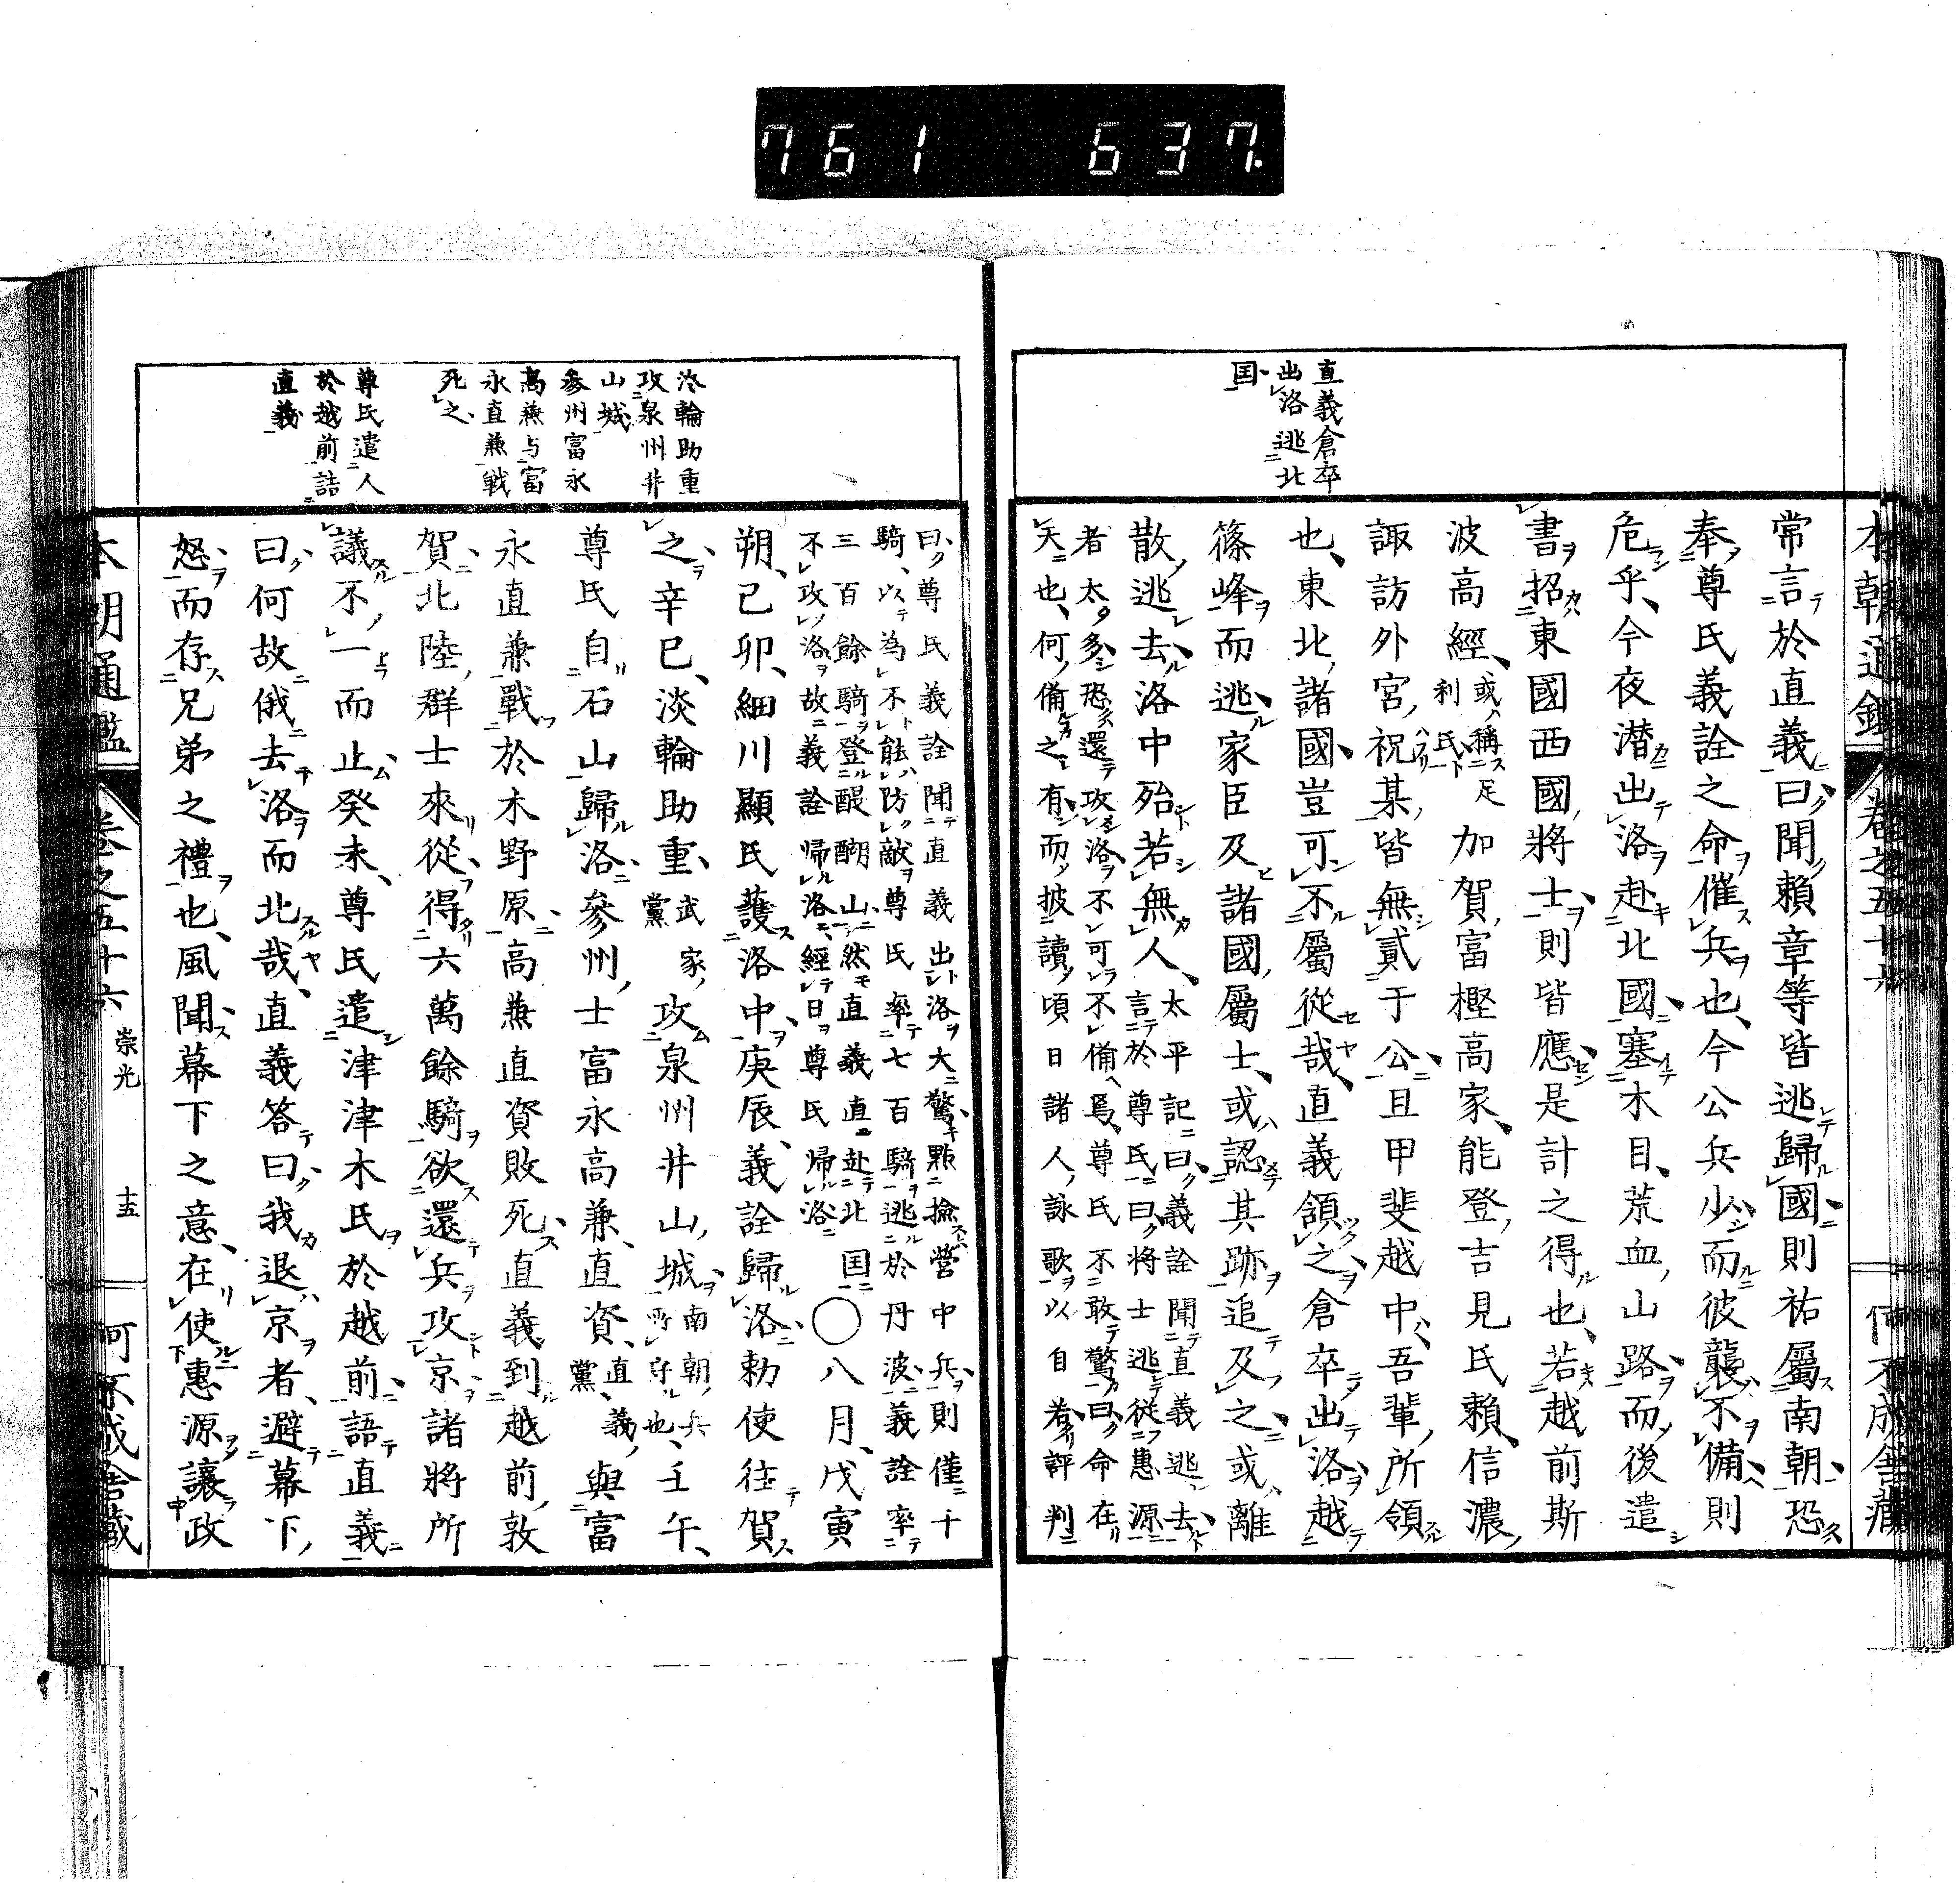 761 637
本朝通鑑 卷之五十六 何不成舎藏
直義倉卒
出洛逃北
国
常言於直義曰聞賴章等皆逃歸國則祐屬南朝恐
奉尊氏義詮之命催兵也今公兵少而彼襲不備則
危乎今夜潜出洛赴北國塞木目荒血山路而後遣
書招東國西國將士則皆應是計之得也若越前斯
波高經或稱足利氏加賀富樫高家能登吉見氏賴信濃
諏訪外宮祝某皆無貳于公且甲斐越中吾輩所領
也東北諸國豈可不屬從哉直義領之倉卒出洛越
篠峰而逃家臣及諸國屬士或認其跡追及之或離
散逃去洛中殆若無人太平記曰義詮聞直義逃去
言於尊氏曰将士逃從惠源
者太多恐還攻洛不可不備焉尊氏不敢驚曰命在
天也何備之有而披讀頃日諸人詠歌以自若評判
冷輪助重
攻泉州井
山城
参州富永
高兼与富
永直兼戦
死之
尊氏遣人
於越前詰
直義
曰尊氏義詮聞直義出洛大驚點撿營中兵則僅千
騎以為不能防敵尊氏率七百騎逃於丹波義詮率
三百餘騎登醍醐山然直義直赴北国
不攻洛故義詮歸洛經日尊氏歸洛
〇八月戊寅
朔己卯細川顯氏護洛中庚辰義詮歸洛勅使往賀
之辛巳淡輪助重武家黨攻泉州井山城南朝兵所守也壬午
尊氏自石山歸洛參州士富永高兼直資直義黨與富
永直兼戰於木野原高兼直資敗死直義到越前敦
賀北陸群士來從得六萬餘騎欲還兵攻京諸將所
議不一而止癸未尊氏遣津津木氏於越前語直義
曰何故俄去洛而北哉直義答曰我退京者避幕下
怒而存兄弟之禮也風聞幕下之意在使惠源讓政
本朝通鑑 卷之五十六 崇光 十五 何不成舎藏